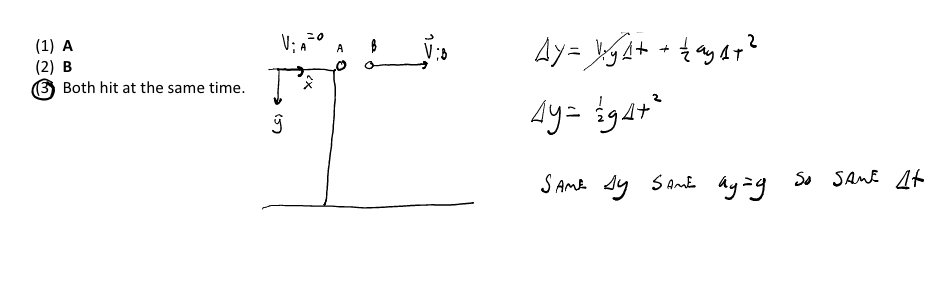 (1) A
(2) B
(3) Both hit at the same time.
V⃗iA=0 A B V⃗iB
x̂
ŷ
Δy = Viy Δt + ½ ay Δt²
Δy = ½ g Δt²
SAME Δy SAME ay=g SO SAME Δt